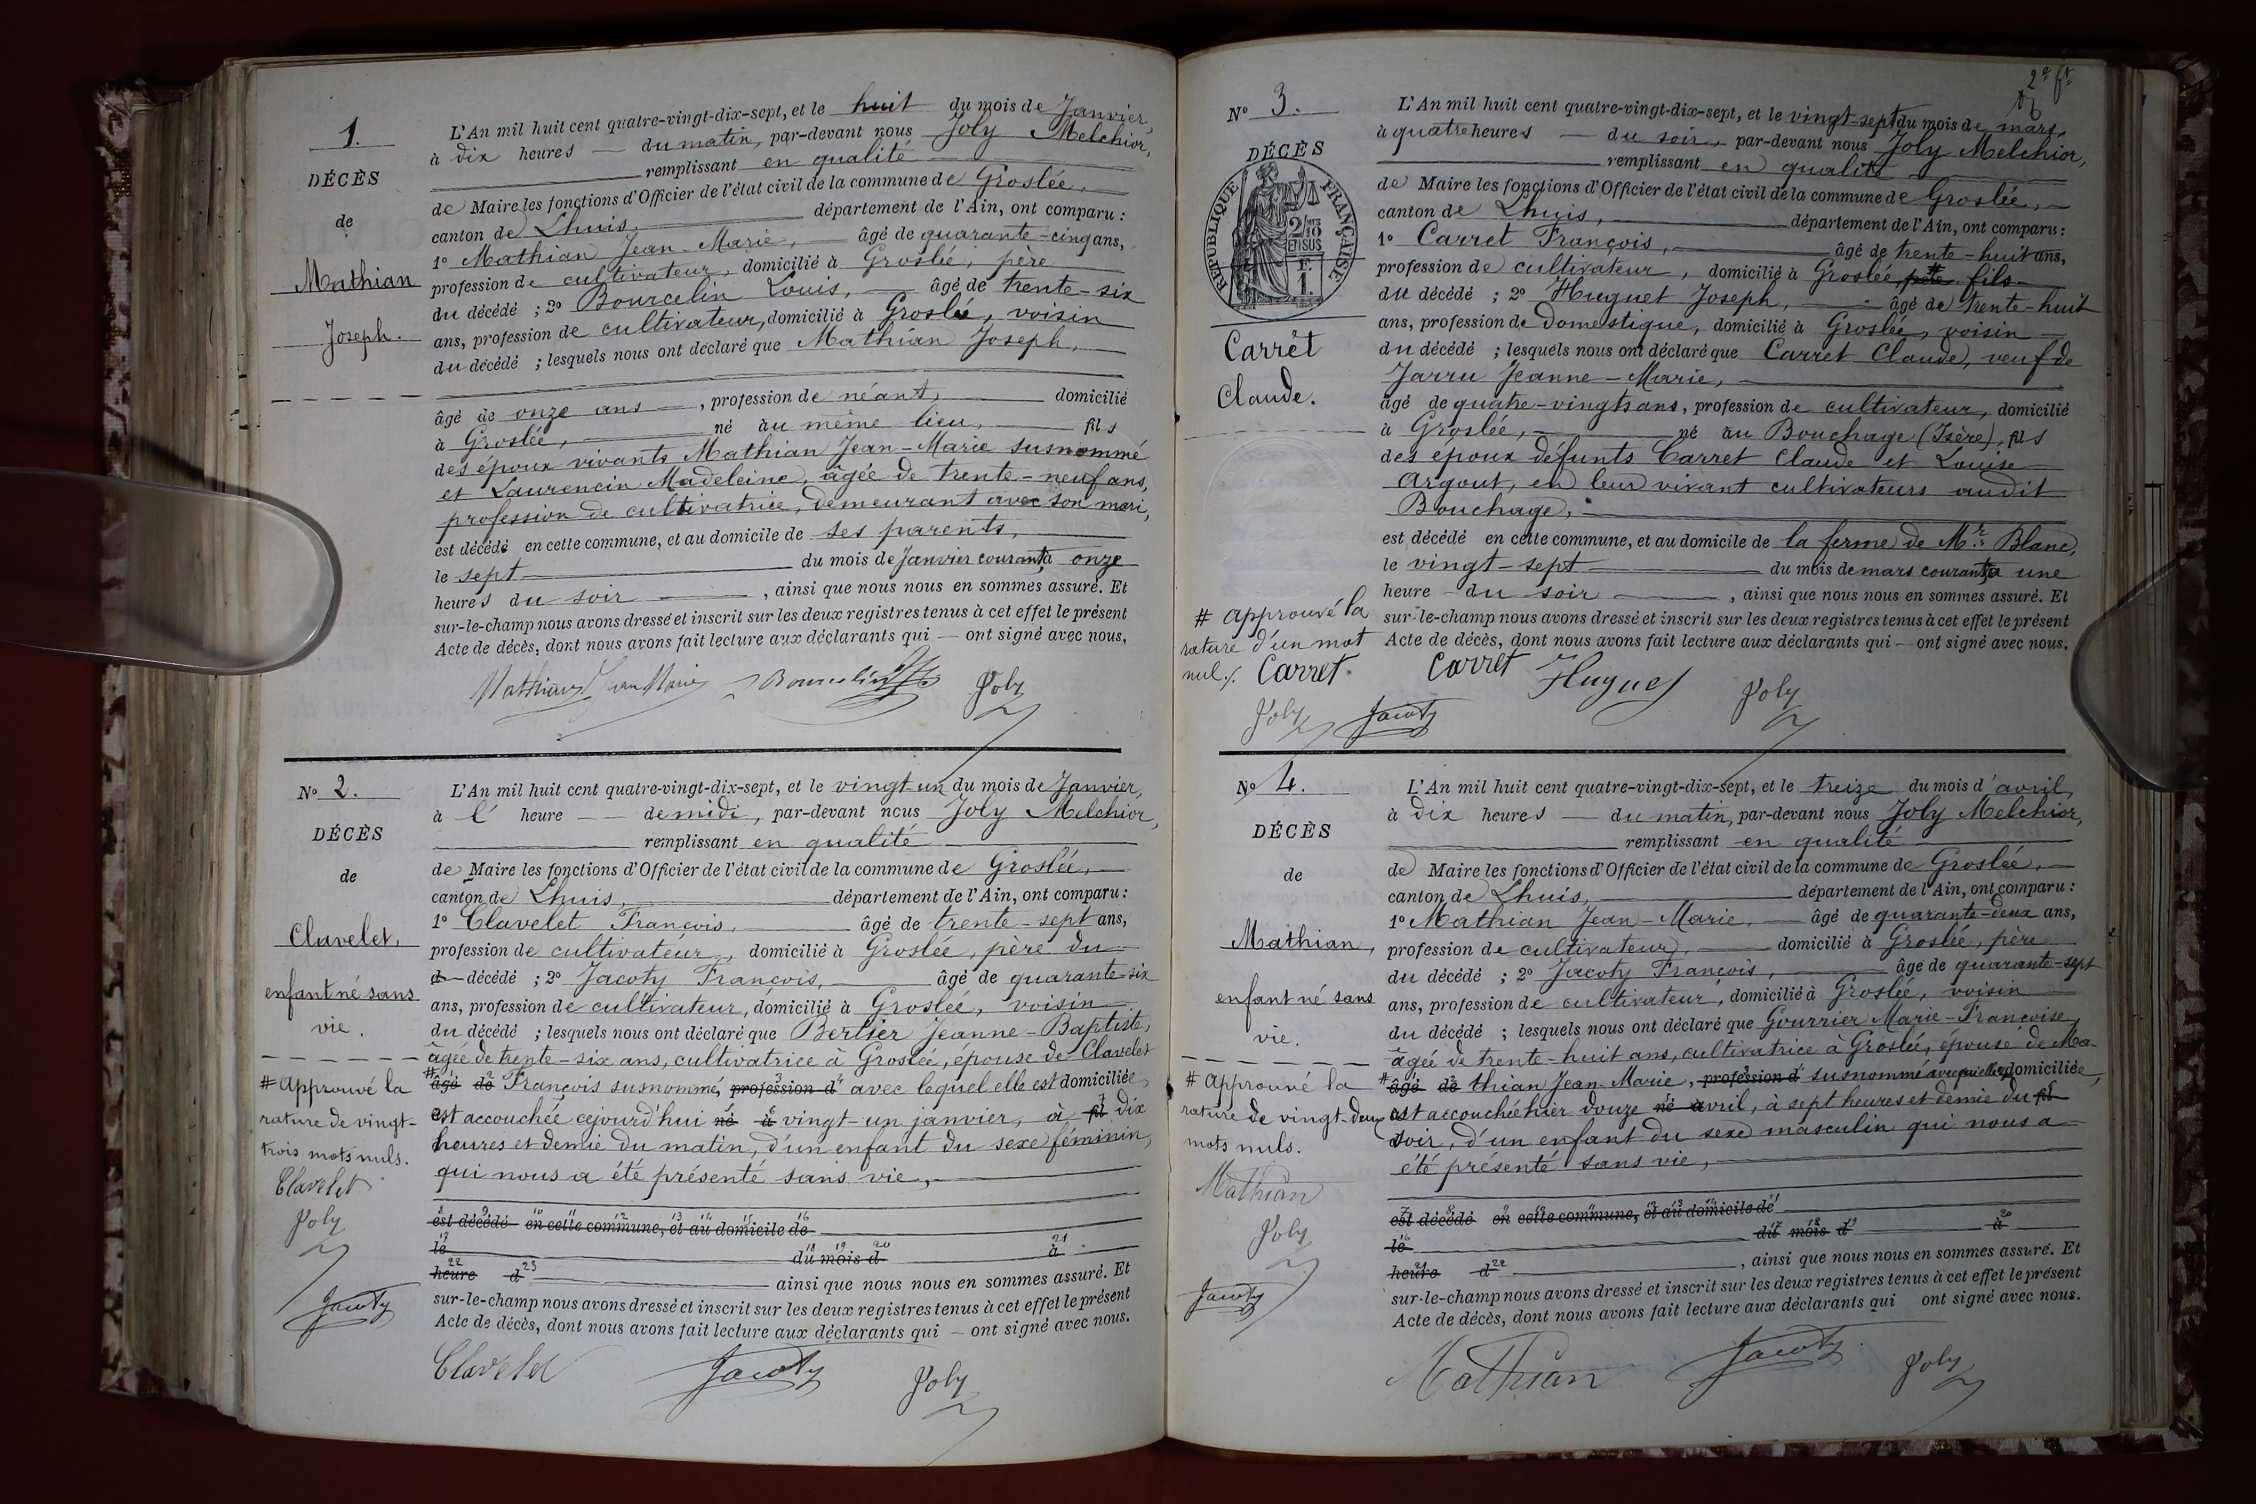 1.
DÉCÈS
de
Mathian
Joseph.
L'An mil huit cent quatre-vingt-dix-sept, et le huit du mois de Janvier,
à dix heures — du matin, par-devant nous Joly Melchior,
remplissant en qualité
de Maire les fonctions d'Officier de l'état civil de la commune de Groslée,
canton de Lhuis, département de l'Ain, ont comparu :
1º Mathian Jean-Marie, âgé de quarante-cinq ans,
profession de cultivateur, domicilié à Groslée, père
du décédé ; 2º Bourcelin Louis, âgé de trente-six
ans, profession de cultivateur, domicilié à Groslée, voisin
du décédé ; lesquels nous ont déclaré que Mathian Joseph,
âgé de onze ans, profession de néant, domicilié
à Groslée, né au même lieu, fils
des époux vivants Mathian Jean-Marie susnommé
et Laurencin Madeleine, âgée de trente-neuf ans,
profession de cultivatrice, demeurant avec son mari,
est décédé en cette commune, et au domicile de ses parents,
le sept du mois de Janvier courant, à onze
heures du soir, ainsi que nous nous en sommes assuré. Et
sur-le-champ nous avons dressé et inscrit sur les deux registres tenus à cet effet le présent
Acte de décès, dont nous avons fait lecture aux déclarants qui — ont signé avec nous,
Mathian Jean Marie Bourcelin Joly
Nº 2.
DÉCÈS
de
Clavelet,
enfant né sans
vie.
# Approuvé la
rature de vingt-
trois mots nuls.
Clavelet
Joly
Jacoty
L'An mil huit cent quatre-vingt-dix-sept, et le vingt un du mois de Janvier,
à l' heure — — de midi, par-devant nous Joly Melchior,
remplissant en qualité
de Maire les fonctions d'Officier de l'état civil de la commune de Groslée,
canton de Lhuis, département de l'Ain, ont comparu :
1º Clavelet François, âgé de trente-sept ans,
profession de cultivateur, domicilié à Groslée, père du
d décédé ; 2º Jacoty François, âgé de quarante-six
ans, profession de cultivateur, domicilié à Groslée, voisin
du décédé ; lesquels nous ont déclaré que Berlier Jeanne-Baptiste,
âgée de trente-six ans, cultivatrice à Groslée, épouse de Clavelet
# âgé de François susnommé, profession d avec lequel elle est domiciliée,
est accouchée cejourd'hui né à vingt-un janvier, à fil dix
heures et demie du matin, d'un enfant du sexe féminin,
qui nous a été présenté sans vie,
est décédé en cette commune, et au domicile de
le du mois d à
heure d ainsi que nous nous en sommes assuré. Et
sur-le-champ nous avons dressé et inscrit sur les deux registres tenus à cet effet le présent
Acte de décès, dont nous avons fait lecture aux déclarants qui — ont signé avec nous.
Clavelet Jacoty Joly
2e ft
Nº 3.
DÉCÈS
RÉPUBLIQUE FRANÇAISE
2/10
EN SUS
F.
1.
Carret
Claude.
# Approuvé la
rature d'un mot
nul ./. Carret.
Joly Jacoty
L'An mil huit cent quatre-vingt-dix-sept, et le vingt-sept du mois de mars,
à quatre heures — du soir, par-devant nous Joly Melchior,
remplissant en qualité
de Maire les fonctions d'Officier de l'état civil de la commune de Groslée,
canton de Lhuis, département de l'Ain, ont comparu :
1º Carret François, âgé de trente-huit ans,
profession de cultivateur, domicilié à Groslée, père # fils
du décédé ; 2º Huguet Joseph, âgé de trente-huit
ans, profession de domestique, domicilié à Groslée, voisin
du décédé ; lesquels nous ont déclaré que Carret Claude, veuf de
Jarru Jeanne-Marie,
âgé de quatre-vingts ans, profession de cultivateur, domicilié
à Groslée, né au Bouchage (Isère), fils
des époux défunts Carret Claude et Louise
Argout, en leur vivant cultivateurs audit
Bouchage,
est décédé en cette commune, et au domicile de la ferme de Mr Blanc,
le vingt-sept du mois de mars courant, à une
heure du soir, ainsi que nous nous en sommes assuré. Et
sur-le-champ nous avons dressé et inscrit sur les deux registres tenus à cet effet le présent
Acte de décès, dont nous avons fait lecture aux déclarants qui — ont signé avec nous.
Carret Huguet Joly
Nº 4.
DÉCÈS
de
Mathian,
enfant né sans
vie.
# Approuvé la
rature de vingt-deux
mots nuls.
Mathian
Joly
Jacoty
L'An mil huit cent quatre-vingt-dix-sept, et le treize du mois d'avril,
à dix heures — du matin, par-devant nous Joly Melchior,
remplissant en qualité
de Maire les fonctions d'Officier de l'état civil de la commune de Groslée,
canton de Lhuis, département de l'Ain, ont comparu :
1º Mathian Jean-Marie, âgé de quarante-deux ans,
profession de cultivateur, domicilié à Groslée, père
du décédé ; 2º Jacoty François, âgé de quarante-sept
ans, profession de cultivateur, domicilié à Groslée, voisin
du décédé ; lesquels nous ont déclaré que Gourrier Marie-Françoise,
âgée de trente-huit ans, cultivatrice à Groslée, épouse de Ma-
# âgé de thian Jean-Marie, profession d susnommé avec qui elle est domiciliée,
est accouchée hier douze né avril, à sept heures et demie du fil
soir, d'un enfant du sexe masculin qui nous a
été présenté sans vie,
est décédé en cette commune, et au domicile de
le du mois d à
heure d, ainsi que nous nous en sommes assuré. Et
sur-le-champ nous avons dressé et inscrit sur les deux registres tenus à cet effet le présent
Acte de décès, dont nous avons fait lecture aux déclarants qui ont signé avec nous.
Mathian Jacoty Joly